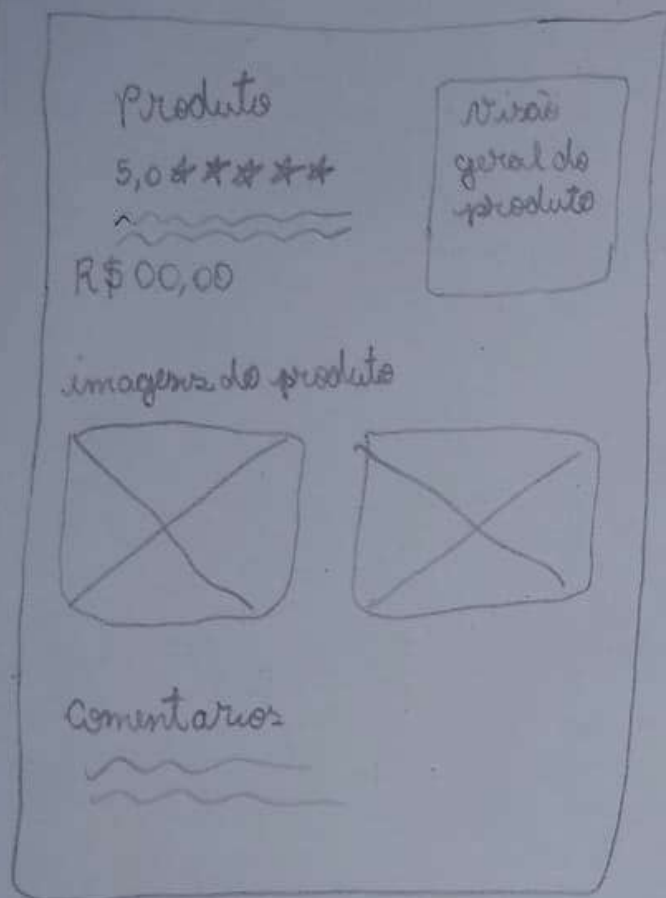 Produto
5,0 ★★★★★
R$ 00,00
Visão
geral do
produto
imagens do produto
Comentarios